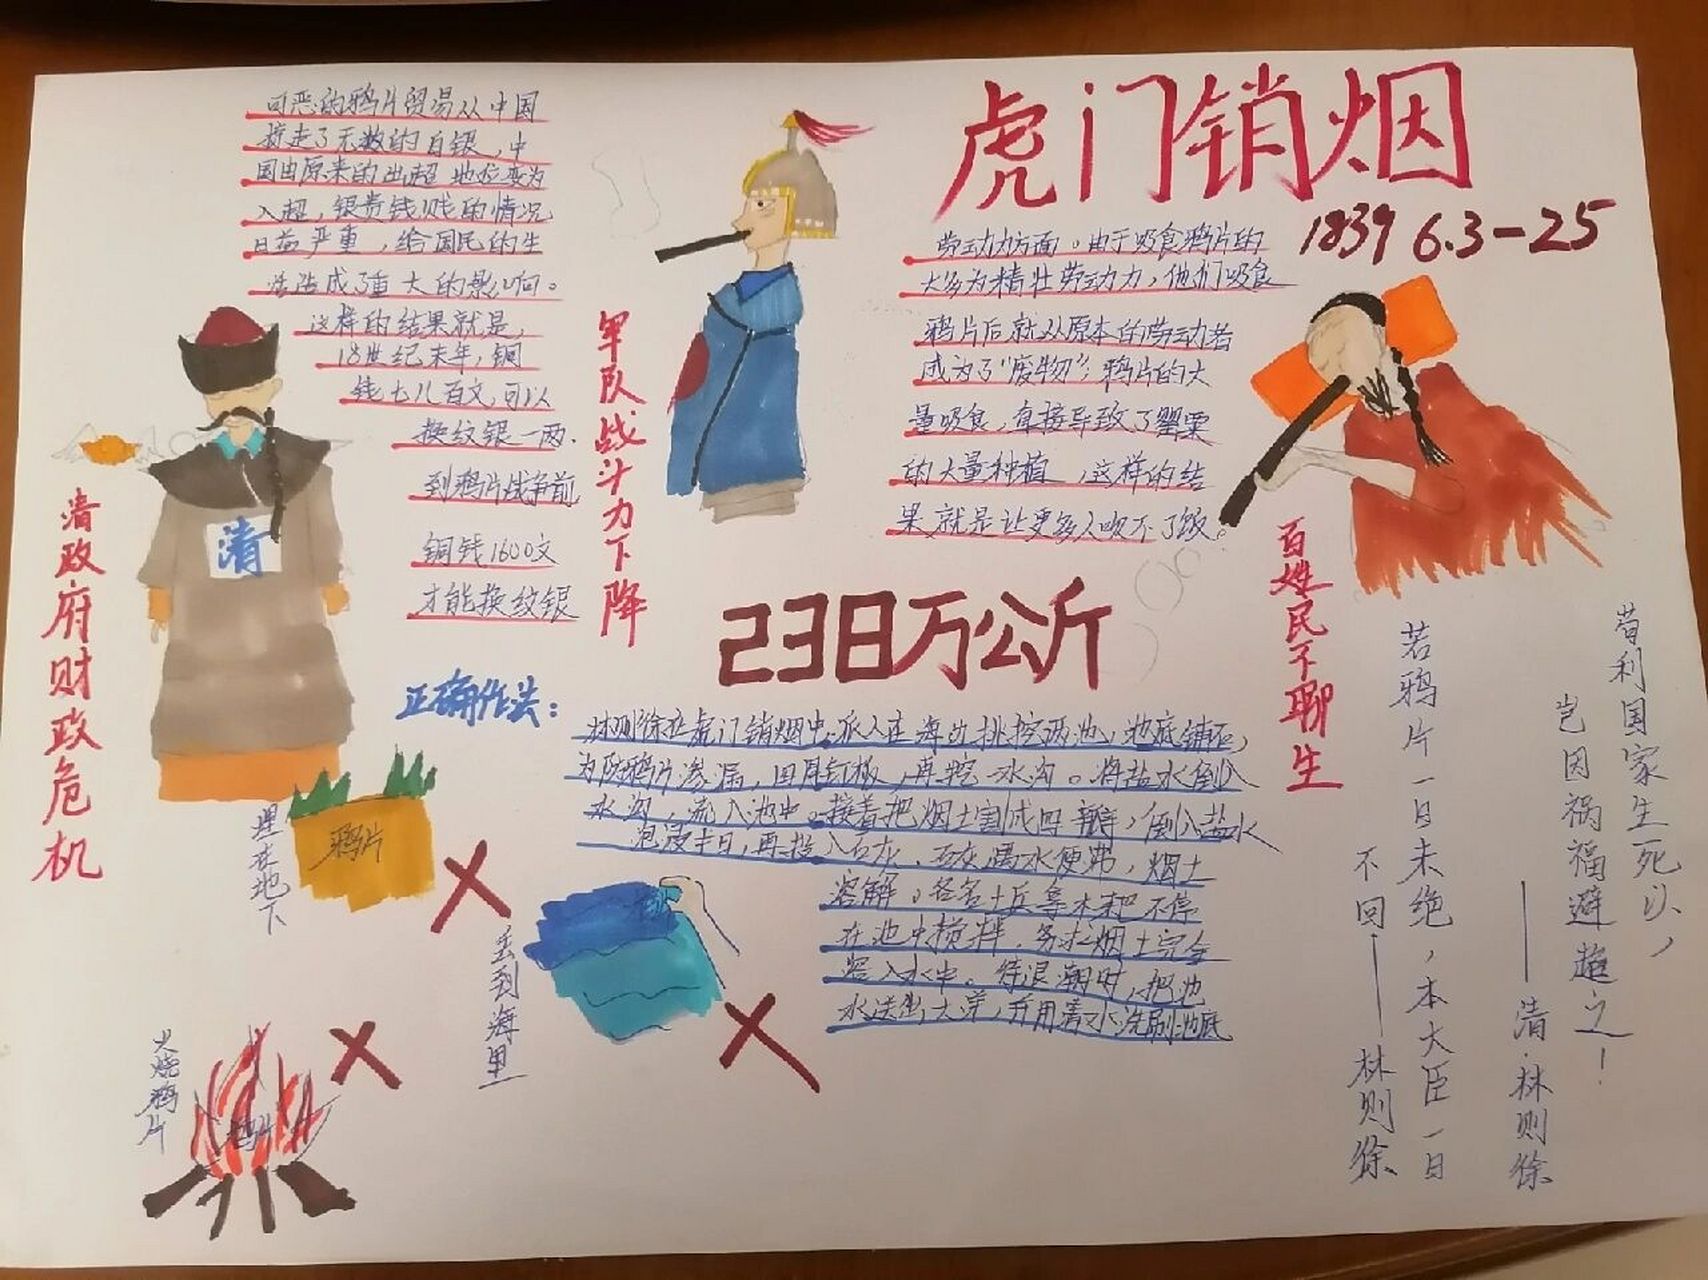 虎门销烟
1839 6.3-25
可恶的鸦片贸易从中国
掠走了无数的白银，中
国由原来的出超地位变为
入超，银贵钱贱的情况
日益严重，给国民的生
活造成了重大的影响。
这样的结果就是，
18世纪末年，铜
钱七八百文，可以
换纹银一两.
到鸦片战争前
铜钱1600文
才能换纹银
清
清政府财政危机
军队战斗力下降
劳动力方面。由于吸食鸦片的
大多为精壮劳动力，他们吸食
鸦片后就从原本的劳动者
成为了"废物"；鸦片的大
量吸食，直接导致了罂粟
的大量种植，这样的结
果就是让更多人吃不了饭。
百姓民不聊生
238万公斤
正确作法：
林则徐在虎门销烟中.派人在海边挑挖两池，池底铺石，
为防鸦片渗漏，四周钉板，再挖一水沟。将盐水倒入
水沟，流入池中。接着把烟土割成四瓣，倒入盐水
泡浸半日，再投入石灰，石灰遇水便沸，烟土
溶解。各名士兵拿木耙不停
在池中搅拌，务求烟土完全
溶入水中。待退潮时，把池
水送出大洋，并用清水洗刷池底
鸦片
埋在地下
丢到海里
火烧鸦片
鸦片
苟利国家生死以，
岂因祸福避趋之！
——清.林则徐
若鸦片一日未绝，本大臣一日
不回——林则徐